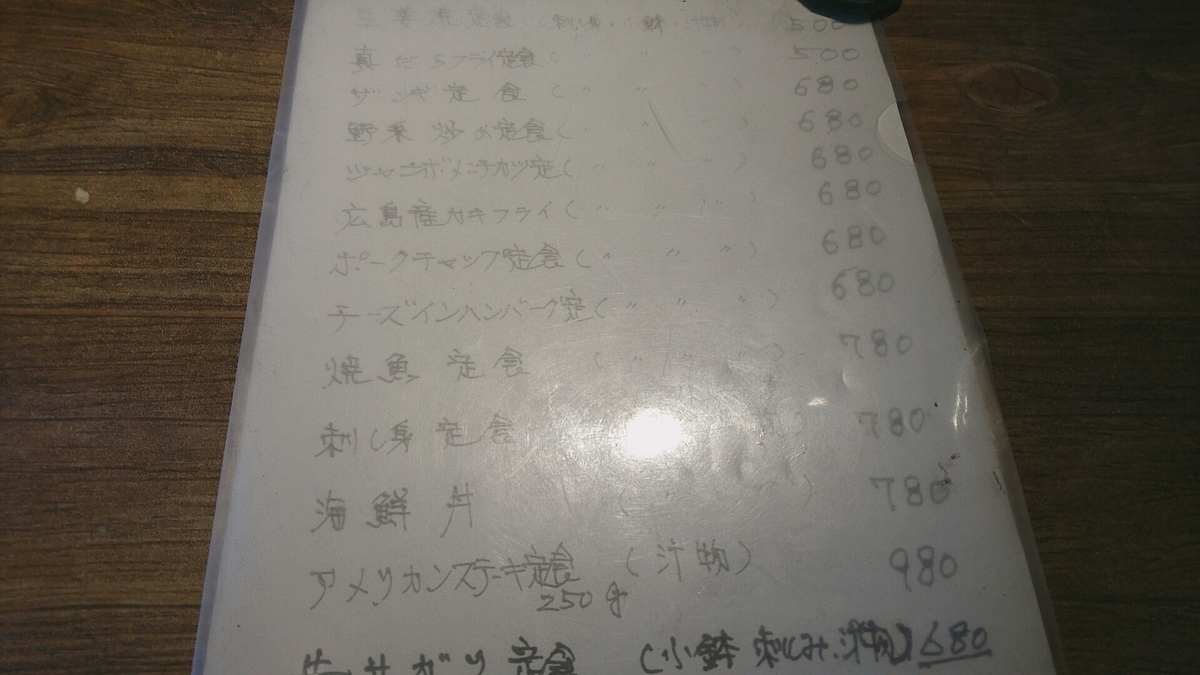 生姜焼定食 (刺し身・小鉢・汁物) 500
真だらフライ定食 ( 〃 〃 〃 ) 500
ザンギ定食 ( 〃 〃 〃 ) 680
野菜炒め定食 ( 〃 〃 〃 ) 680
ジャンボメンチカツ定 ( 〃 〃 〃 ) 680
広島産カキフライ ( 〃 〃 〃 ) 680
ポークチャップ定食 ( 〃 〃 〃 ) 680
チーズインハンバーグ定 ( 〃 〃 〃 ) 680
焼魚定食 ( 〃 〃 〃 ) 780
刺し身定食 780
海鮮丼 ( 〃 ) 780
アメリカンステーキ定食 (汁物) 980
250g
定食 (小鉢 刺しみ.汁物) 680